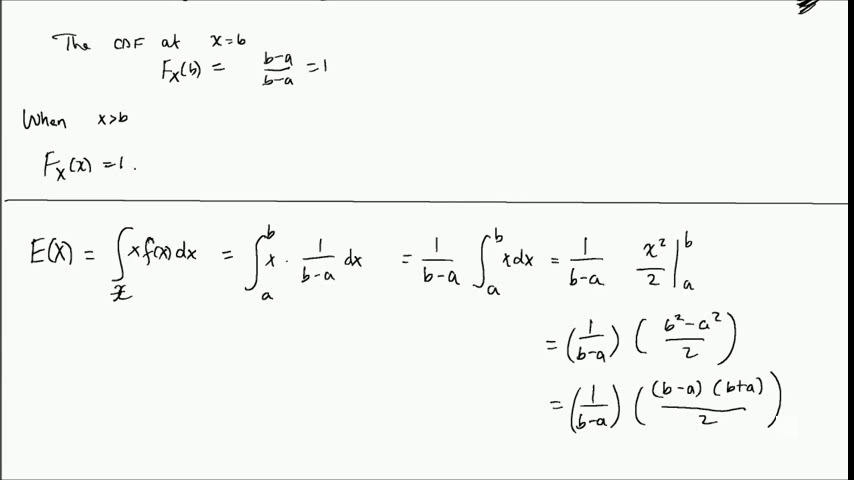 The CDF at x=b
F_X(b) = \frac{b-a}{b-a} = 1
When x>b
F_X(x) = 1.
E(X) = \int_{\mathcal{X}} x f(x) dx = \int_a^b x \cdot \frac{1}{b-a} dx = \frac{1}{b-a} \int_a^b x dx = \frac{1}{b-a} \frac{x^2}{2} \Big|_a^b
= \left(\frac{1}{b-a}\right) \left(\frac{b^2-a^2}{2}\right)
= \left(\frac{1}{b-a}\right) \left(\frac{(b-a)(b+a)}{2}\right)